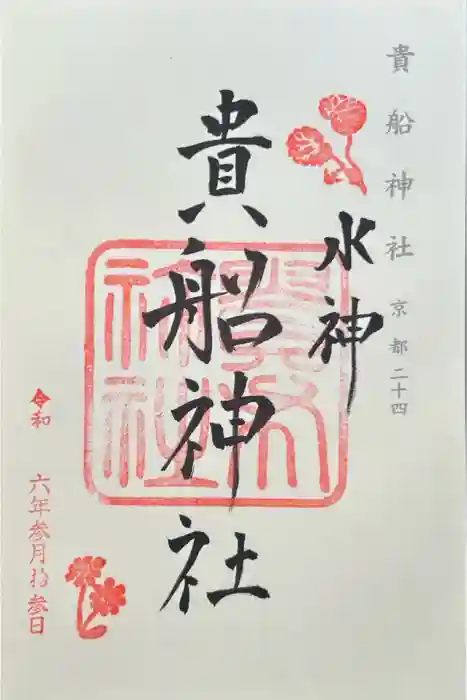 貴船神社 京都二十四
水神
貴船神社
令和 六年参月拾参日